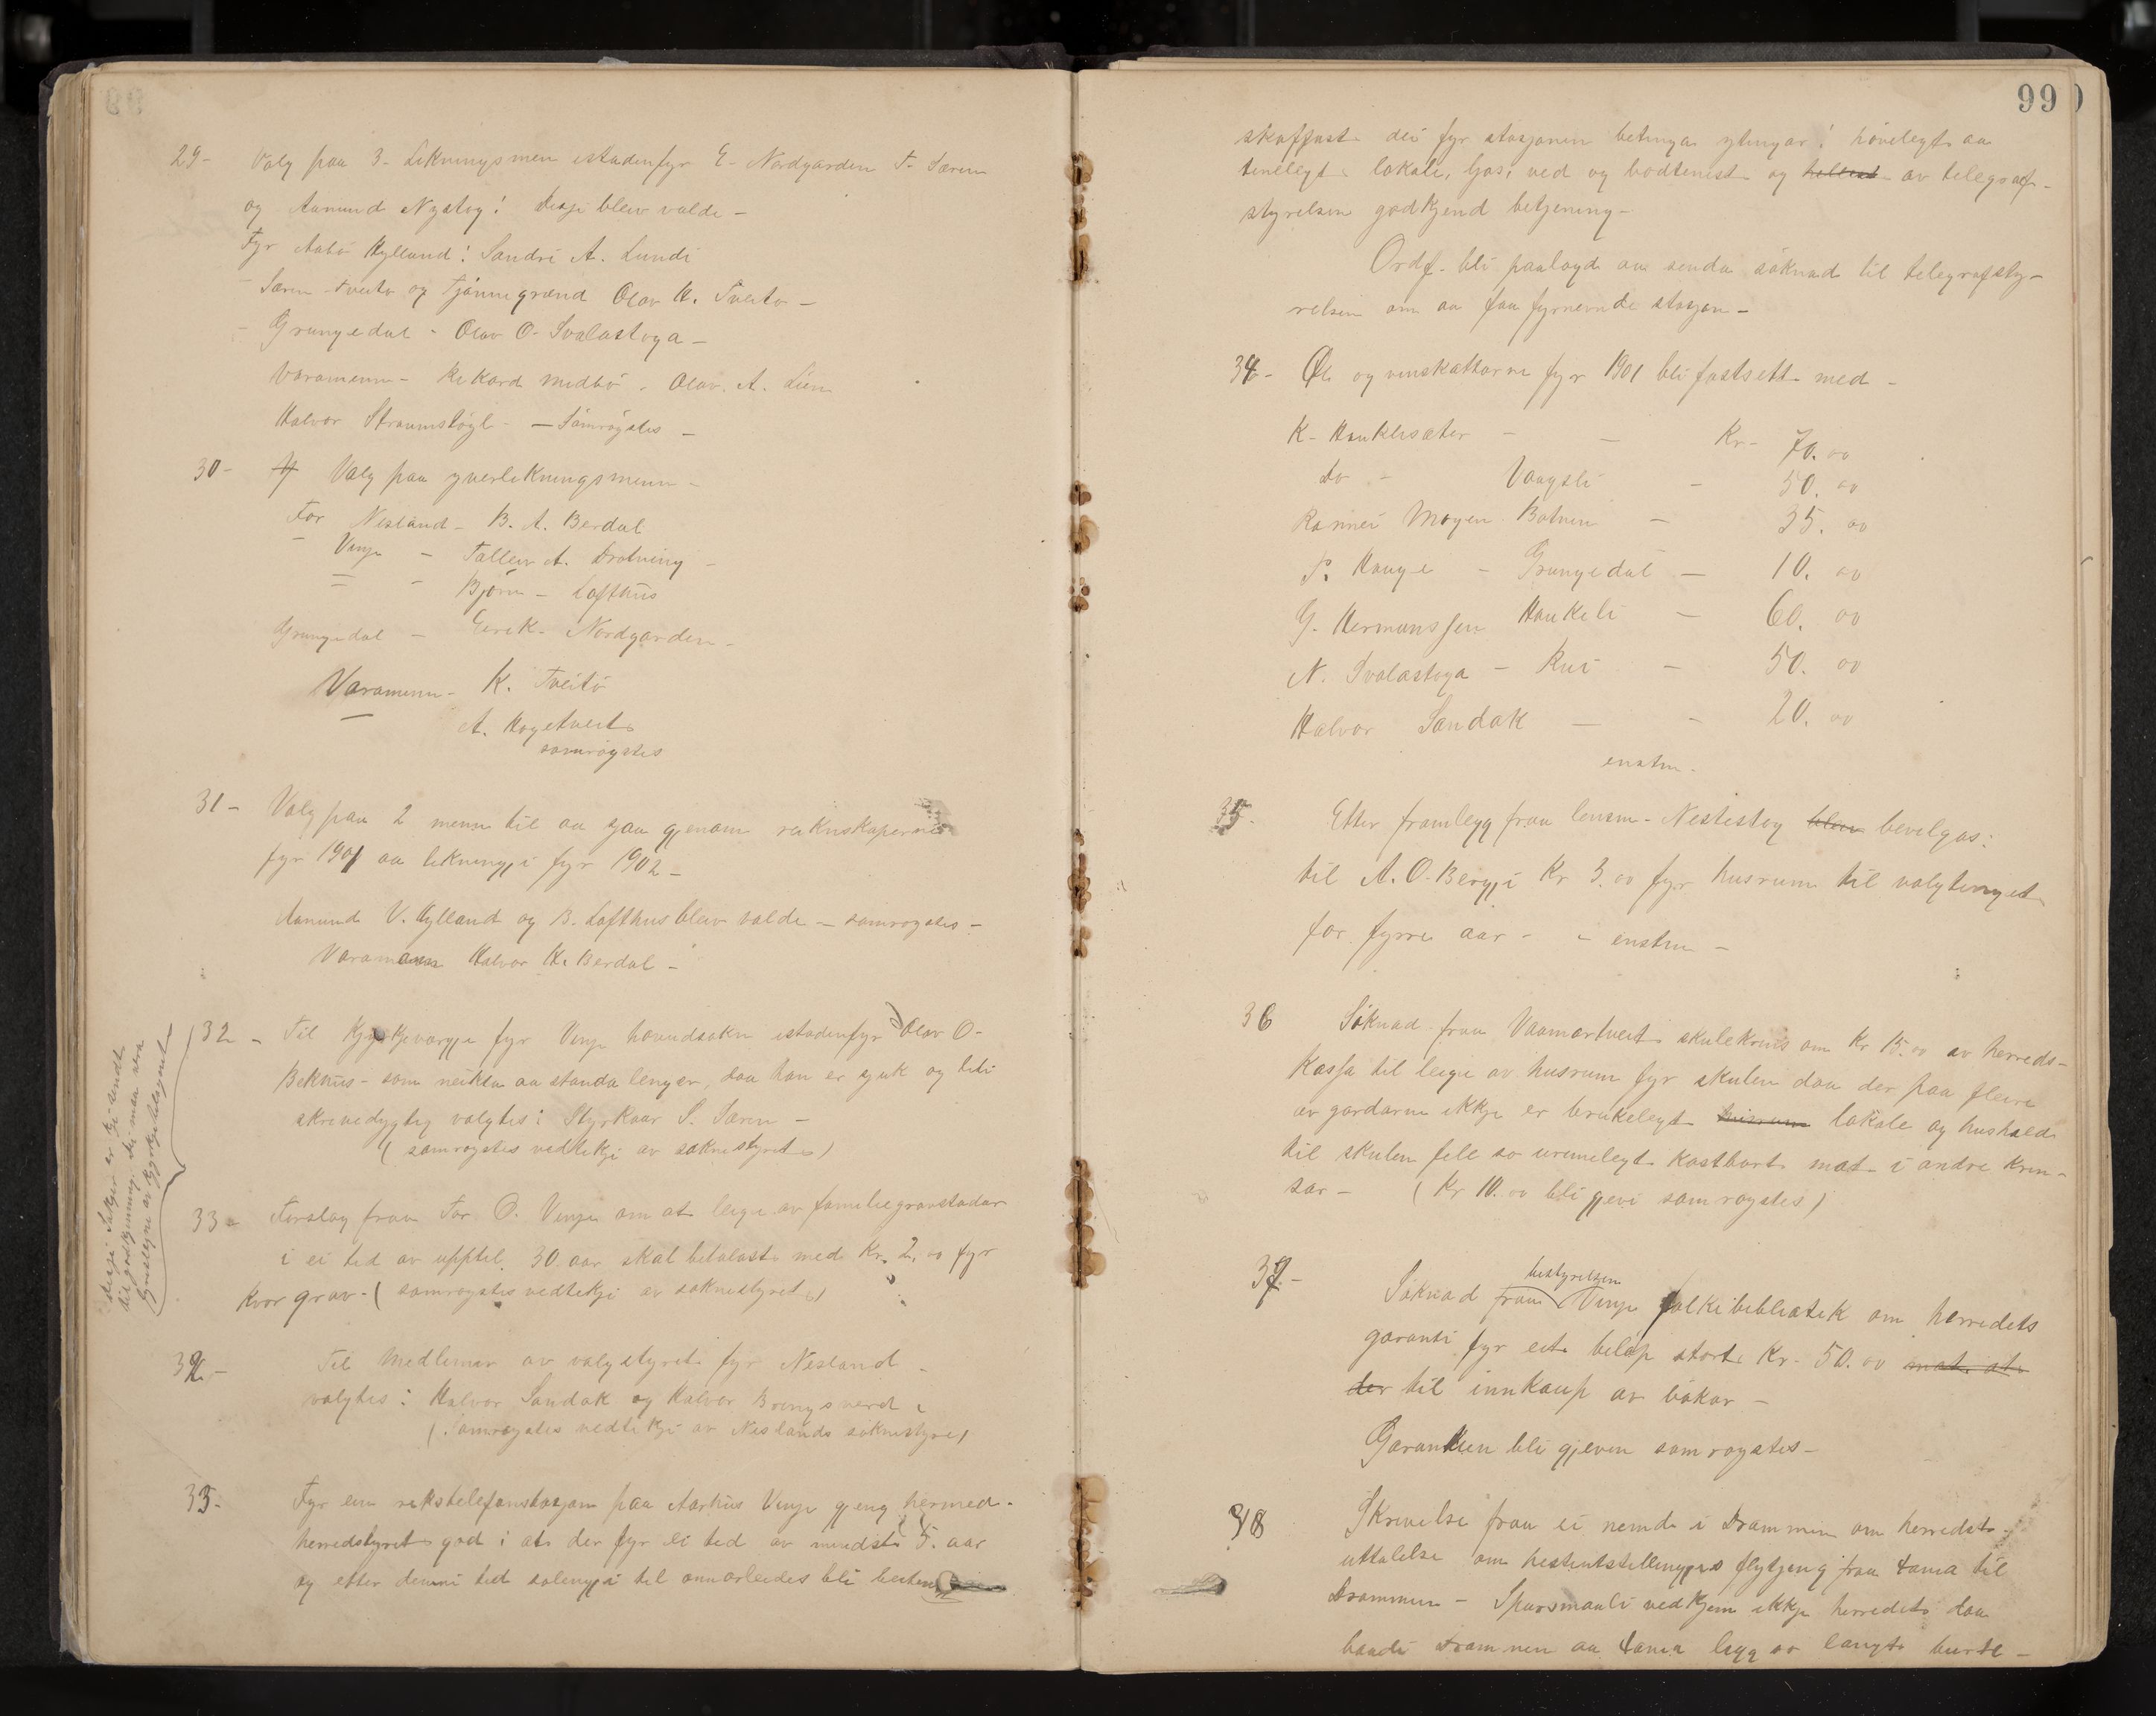 29- Valg paa 3- Likningsmen istadenfyr E- Nordgarden T. Særen
og Aamund Nystog! Desse blev valde -
Fyr Aabö Hylland! Sandri A. Lundi
- Særen Tveito og Tjönnegrænd Olav H. Tveito -
- Grungedal - Olav O- Svalastoga -
Varamenn - Rikard Midbö - Olav. A. Lien
Halvor Straumstöyl - - Samröystes -
30- Valg paa yverlikningsmenn -
For Nesland - B. A. Berdal
- Vinje - Tallev A. Drotning -
= - Björn - Lofthus
Grungedal - Eirik- Nordgarden -
Varamenn - K. Tveito
A. Hogetveit
samröystes
31- Valg paa 2 menn til aa gaa gjenom rekneskaperne
fyr 1901 aa likningji fyr 1902 -
Aamund V. Hylland og B. Lofthus blev valde - samrøystes -
Varamann Halvor H. Berdal -
32 - Til Kyrkjeværgje fyr Vinje hovudsokn istadenfyr Olav O-
Bekhus - som neikta aa standa lenger, daa han er sjuk og liti
skrivedygtig valgtes: Styrkaar S. Særen -
( samrøystes vedtikje av soknestyret )
33- Forslag fraa Tor O. Vinje om at leige av familiegravstadar
i ei tid av upptil 30 aar skal betalast med Kr. 2,00 fyr
kvor grav - ( samrøystes vedtikje av soknestyret )
Desse Saker er ikkje sendt
til godkjenning. Dei maa vera
fyrelegne av Kyrkjetilsynet
32.- Til Medlemer av valgstyret fyr Nesland -
valgtes: Halvor Sandok og Halvor Bringsverd -
( Samrøystes vedtikje av Neslands soknestyre )
33- Fyr ein rikstelefonstasjon paa Aarhus Vinje gjeng hermed -
herredstyret god i at der fyr ei tid av mindst 5. aar
og etter denni tid solengji til annarleides bli bestemt
99
skaffast dei fyr stasjonen betinga ytingar! hövelegt aa
tenelegt lokale, ljos, ved og bodtenist og av telegraf-
styrelsen godkjend betjening -
Ordf. bli paalagd aa senda söknad til telegrafsty-
relsen om aa faa fyrnevnde stasjon -
34- Øl og vinskattarne fyr 1901 bli fastsett med -
K- Haukliseter - - Kr- 70.00
Do - Vaagsli - 50.00
Rannei Moyen Botnen - 35.00
P. Hauge - Grungedal - 10.00
G. Hermanssen Haukeli - 60.00
N. Svalastoga - Rui - 50.00
Halvor Sandok - - 20.00
enstm.
35- Etter framlegg fraa lensm- Nestestog blev bevilgas:
til A. O. Bergji Kr 3.00 fyr husrum til valgtinget
for fyrre aar - - enstm -
36 Söknad fraa Vaamartveit skulekrins om Kr 15.00 av herreds-
kassa til leige av husrum fyr skulen daa der paa fleire
av gardarne ikkje er brukelegt husrum lokale og hushald
til skulen fell so urimelegt kostbart mot i andre krin-
sar - ( Kr 10.00 bli gjevi samrøystes )
37- Söknad fraa bestyrelsen Vinje folkebibliotek om herredets
garanti fyr eit belöp stort Kr- 50.00 mot at
der til innkaup av bökar -
Garantien bli gjeven samrøystes -
38 Skrivelse fraa ei nemd i Drammen om herredets
uttalelse om hestutstellingjas flytjing fraa 4ania til
Drammen - Spursmaali vedkjem ikkje herredet daa
baade Drammen aa 4ania ligg so langt burte -